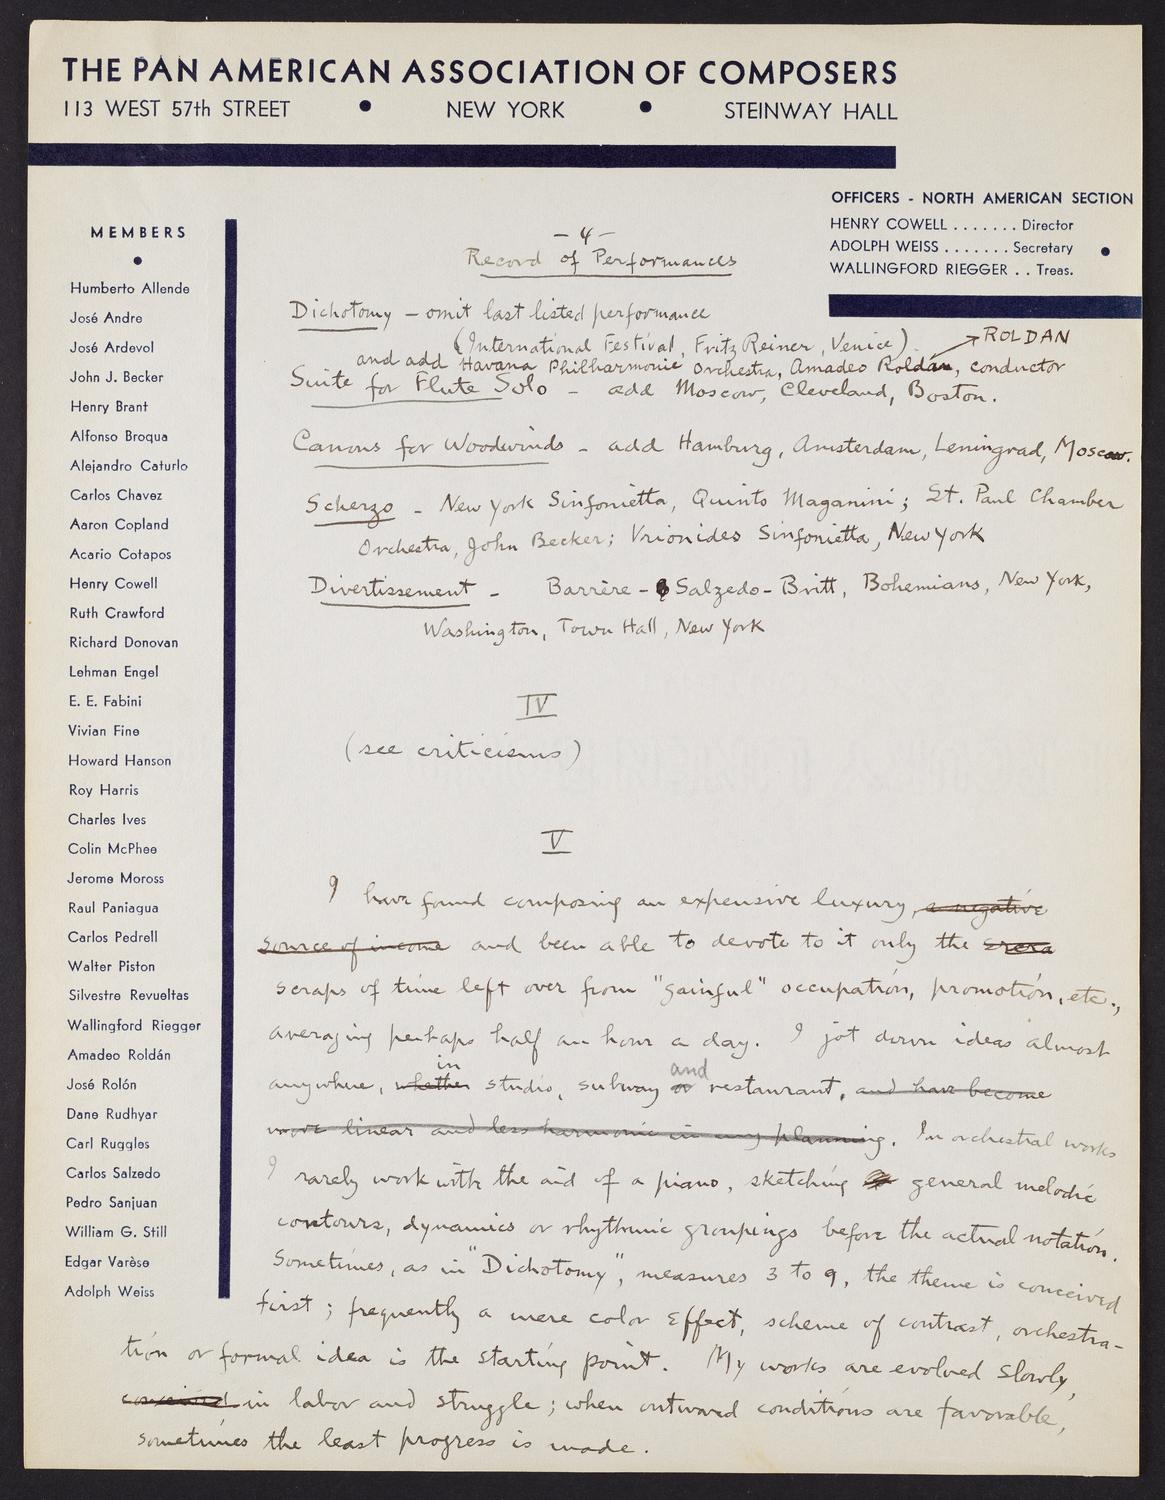 THE PAN AMERICAN ASSOCIATION OF COMPOSERS
113 WEST 57th STREET • NEW YORK • STEINWAY HALL
OFFICERS - NORTH AMERICAN SECTION
HENRY COWELL . . . . . . . Director
ADOLPH WEISS . . . . . . . Secretary
WALLINGFORD RIEGGER . . Treas.
MEMBERS
Humberto Allende
José Andre
José Ardevol
John J. Becker
Henry Brant
Alfonso Broqua
Alejandro Caturlo
Carlos Chavez
Aaron Copland
Acario Cotapos
Henry Cowell
Ruth Crawford
Richard Donovan
Lehman Engel
E. E. Fabini
Vivian Fine
Howard Hanson
Roy Harris
Charles Ives
Colin McPhee
Jerome Moross
Raul Paniagua
Carlos Pedrell
Walter Piston
Silvestre Revueltas
Wallingford Riegger
Amadeo Roldán
José Rolón
Dane Rudhyar
Carl Ruggles
Carlos Salzedo
Pedro Sanjuan
William G. Still
Edgar Varèse
Adolph Weiss
- 4 -
Record of Performances
Dichotomy - omit last listed performance
(International Festival, Fritz Reiner, Venice)
ROLDAN
and add Havana Philharmonic Orchestra, Amadeo Roldán, conductor
Suite for Flute Solo - add Moscow, Cleveland, Boston.
Canons for Woodwinds - add Hamburg, Amsterdam, Leningrad, Moscow.
Scherzo - New York Sinfonietta, Quinto Maganini; St. Paul Chamber
Orchestra, John Becker; Vrionides Sinfonietta, New York
Divertissement - Barrère - Salzedo - Britt, Bohemians, New York,
Washington, Town Hall, New York
IV
(see criticisms)
V
I have found composing an expensive luxury, a negative
source of income and been able to devote to it only the
scraps of time left over from "gainful" occupation, promotion, etc.,
averaging perhaps half an hour a day. I jot down ideas almost
in and
anywhere, whether studio, subway or restaurant, and have become
more linear and less harmonic in my planning. In orchestral works
I rarely work with the aid of a piano, sketching general melodic
contours, dynamics or rhythmic groupings before the actual notation.
Sometimes, as in "Dichotomy", measures 3 to 9, the theme is conceived
first; frequently a mere color effect, scheme of contrast, orchestra-
tion or formal idea is the starting point. My works are evolved slowly,
conceived in labor and struggle; when outward conditions are favorable,
sometimes the least progress is made.